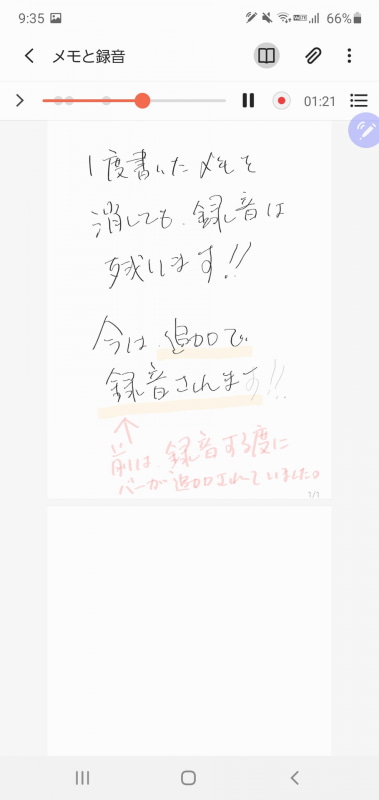 9:35
66%
メモと録音
01:21
1度書いたメモを
消しても、録音は
残ります!!
今は、追加で
録音されます!!
前は、録音する度に
バーが追加されていました。
1/1